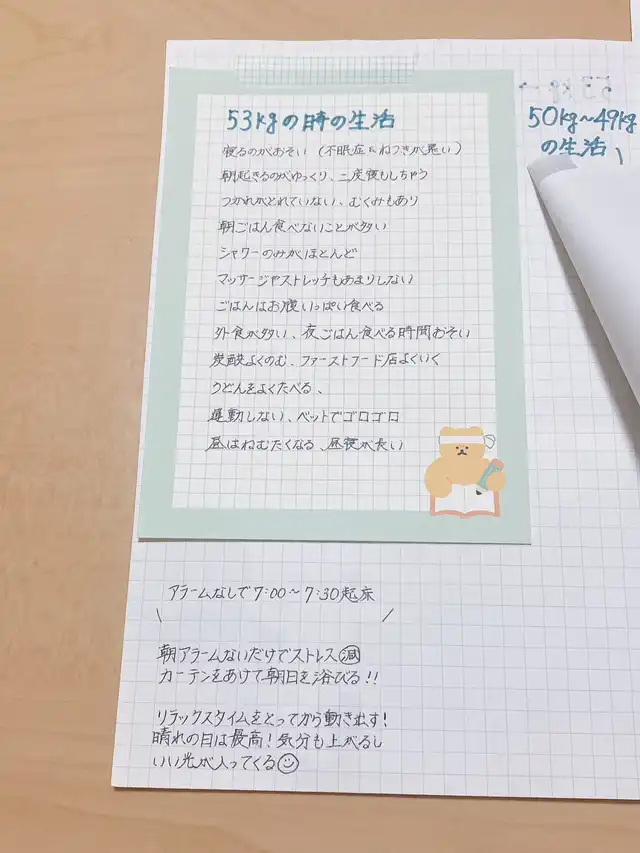 53kgの時の生活
寝るのがおそい (不眠症なねつきが悪い)
朝起きるのがゆっくり、二度寝もしちゃう
つかれがとれていない、むくみもあり
朝ごはん食べないことが多い
シャワーのみがほとんど
マッサージやストレッチもあまりしない
ごはんはお腹いっぱい食べる
外食が多い、夜ごはん食べる時間おそい
炭酸よくのむ、ファーストフード店よくいく
うどんをよくたべる、
運動しない、ベットでゴロゴロ
昼はねむたくなる、昼寝が長い
50kg~49kg
の生活
アラームなしで7:00~7:30起床
朝アラームないだけでストレス減
カーテンをあけて朝日を浴びる!!
リラックスタイムをとってから動き出す!
晴れの日は最高!気分も上がるし
いい光が入ってくる